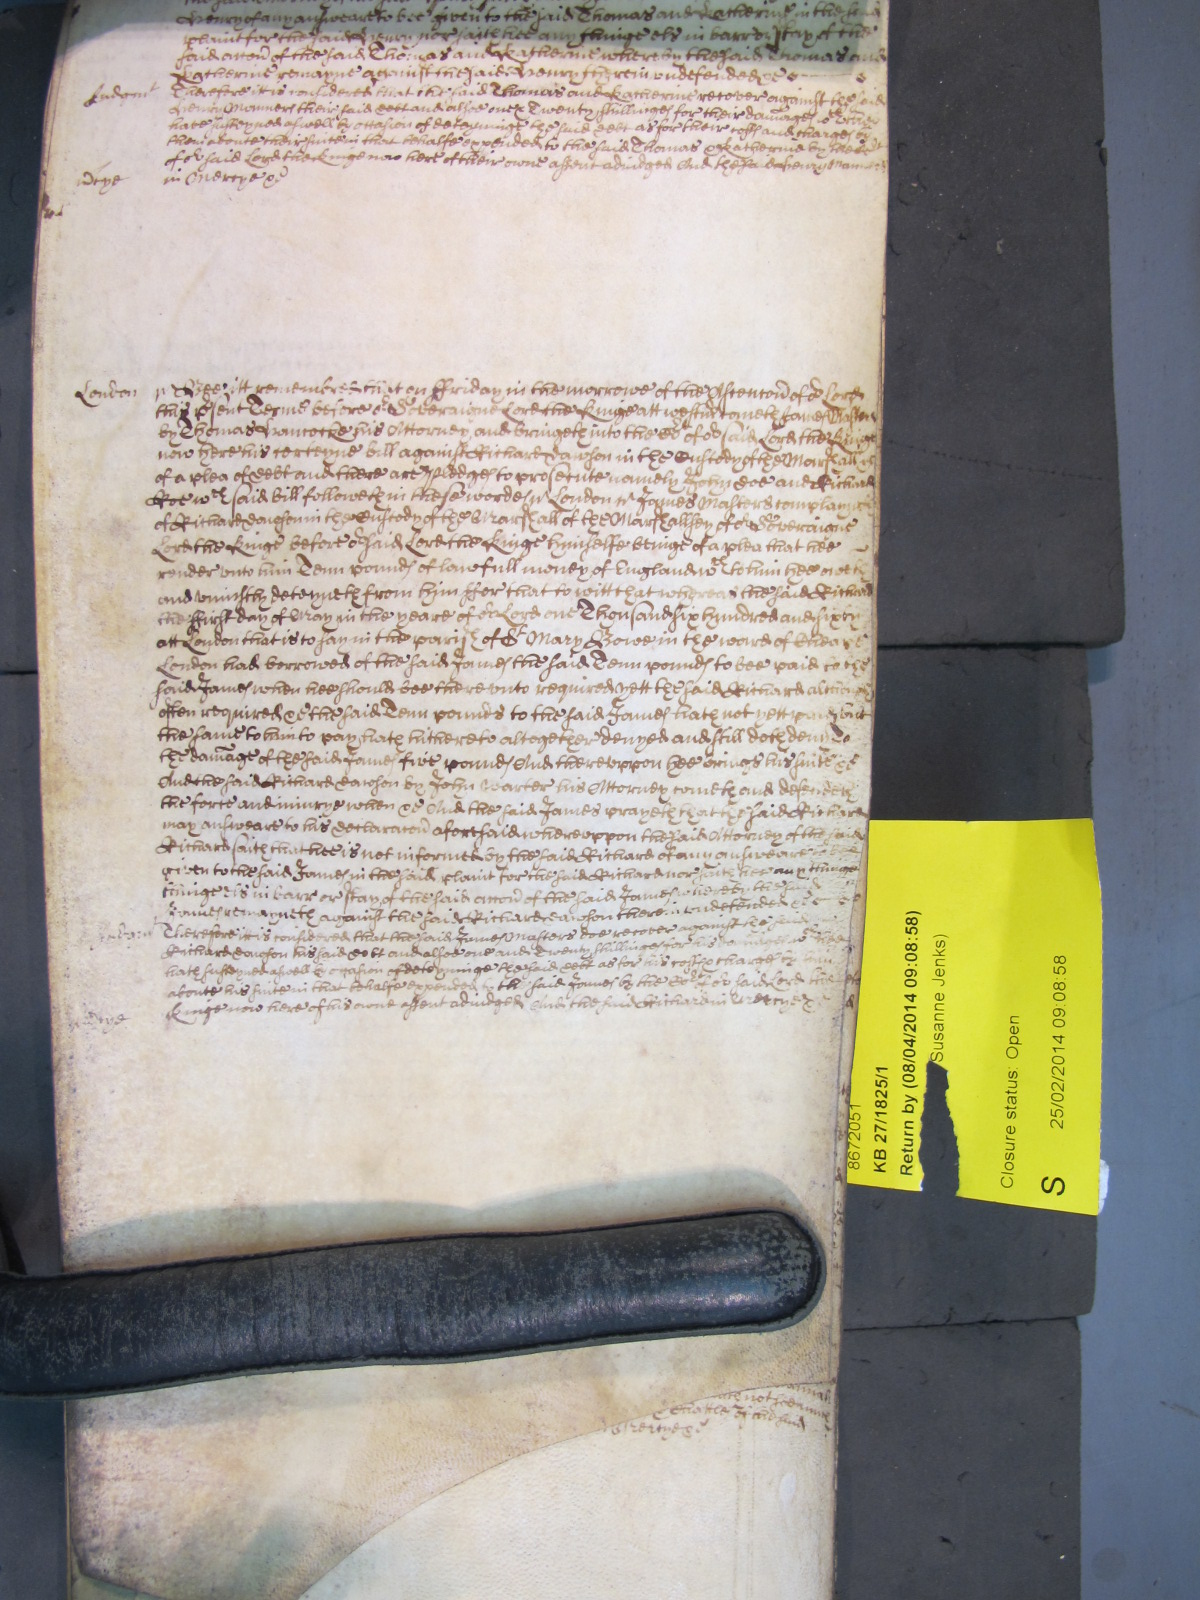 Henry of any answeare to bee given to the said Thomas and Katherine in the said
plaint for the said Henry nor saith hee any thinge els in barr or stay of the
said accon of the said Thomas and Katherine whereby the said Thomas and
Katherine remayne against the said Henry therein undefended &c
Judgmt
Therefore it is considered that the said Thomas and Katherine recover against the said
Henry Manners their said debt and alsoe Twenty shillinges for their damages wch they
have susteyned aswell by occasion of deteyninge the said debt as for their costs and charges by
them about their suite in that behalfe expended to the said Thomas & Katherine by the Cort
of or said Lord the Kinge now here of their owne assent adiudged And the said Henry Manners
mcye
in Mercye &c
London
Bee itt remembred that on ffriday in the morrowe of the Ascencon of or Lord
this psent Terme before or Soveraigne Lord the Kinge att Westm cometh James Masters
by Thomas his Attorney and bringeth into the Cort of or said Lord the Kinge
now here his certeyne bill against Richard Dawson in the Custody of the Marshall &c
of a plea of debt and there are Pledges to prosecute namely John Doe and Richard
Roe wch said bill followeth in these wordes London James Masters complaineth
of Richard Dawson in the Custody of the Marshall of the Marshallsey of or Soveraigne
Lord the Kinge before or said Lord the Kinge himselfe beinge of a plea that hee
render unto him Tenn pounds of lawfull money of England wch to him hee oweth
and uniustly deteyneth from him ffor that to witt that whereas the said Richard
the ffirst day of May in the yeare of or Lord one Thousand six hundred and sixty
att London that is to say in the parish of St Mary Bowe in the ward of Cheape
London had borrowed of the said James the said Tenn pounds to bee paid to the
said James when hee should bee there unto required yett the said Richard although
often required &c the said Tenn pounds to the said James hath not yett paid but
the same to him to pay hath hitherto altogether denyed and still doth deny To
the damage of the said James five pounds And thereuppon hee brings his suite &c
And the said Richard Dawson by John Carter his Attorney cometh and defendeth
the force and iniurye when &c And the said James prayeth that the said Richard
may answeare to his declaracon aforesaid whereuppon the said Attorney of the said
Richard saith that hee is not informed by the said Richard of any answeare to bee
given to the said James in the said plaint for the said Richard nor saith hee any thinge
thinge els in barr or stay of the said accon of the said James whereby the said
James remayneth against the said Richard Dawson therein undefended &c
Judgmt
Therefore it is considered that the said James Masters doe recover against the said
Richard Dawson his said debt and alsoe one and Twenty shillinges for his damages wch hee
hath susteyned aswell by occasion of deteyninge the said debt as for his costs & charges by him
about his suite in that behalfe expended to the said James by the Cort of or said Lord the
Kinge now here of his owne assent adiudged And the said Richard in Mercye &c
mcye
Mercye &c
8672051
KB 27/1825/1
Return by (08/04/2014 09:08:58)
Susanne Jenks)
Closure status: Open
S
25/02/2014 09:08:58